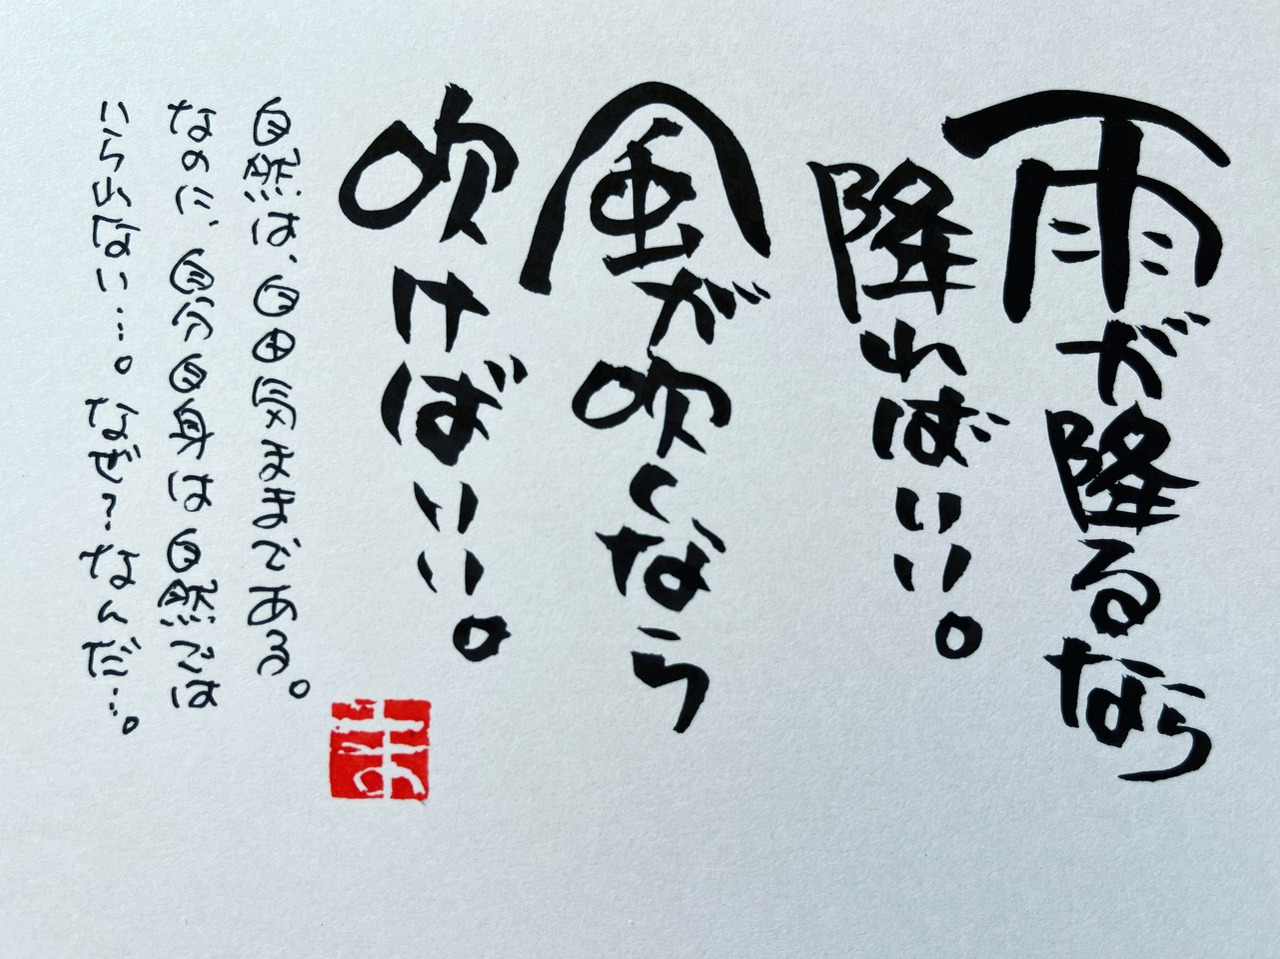 雨が降るなら
降ればいい。
風が吹くなら
吹けばいい。
自然は、自由気ままである。
なのに、自分自身は自然では
いられない…。なぜ?なんだ…。
ま